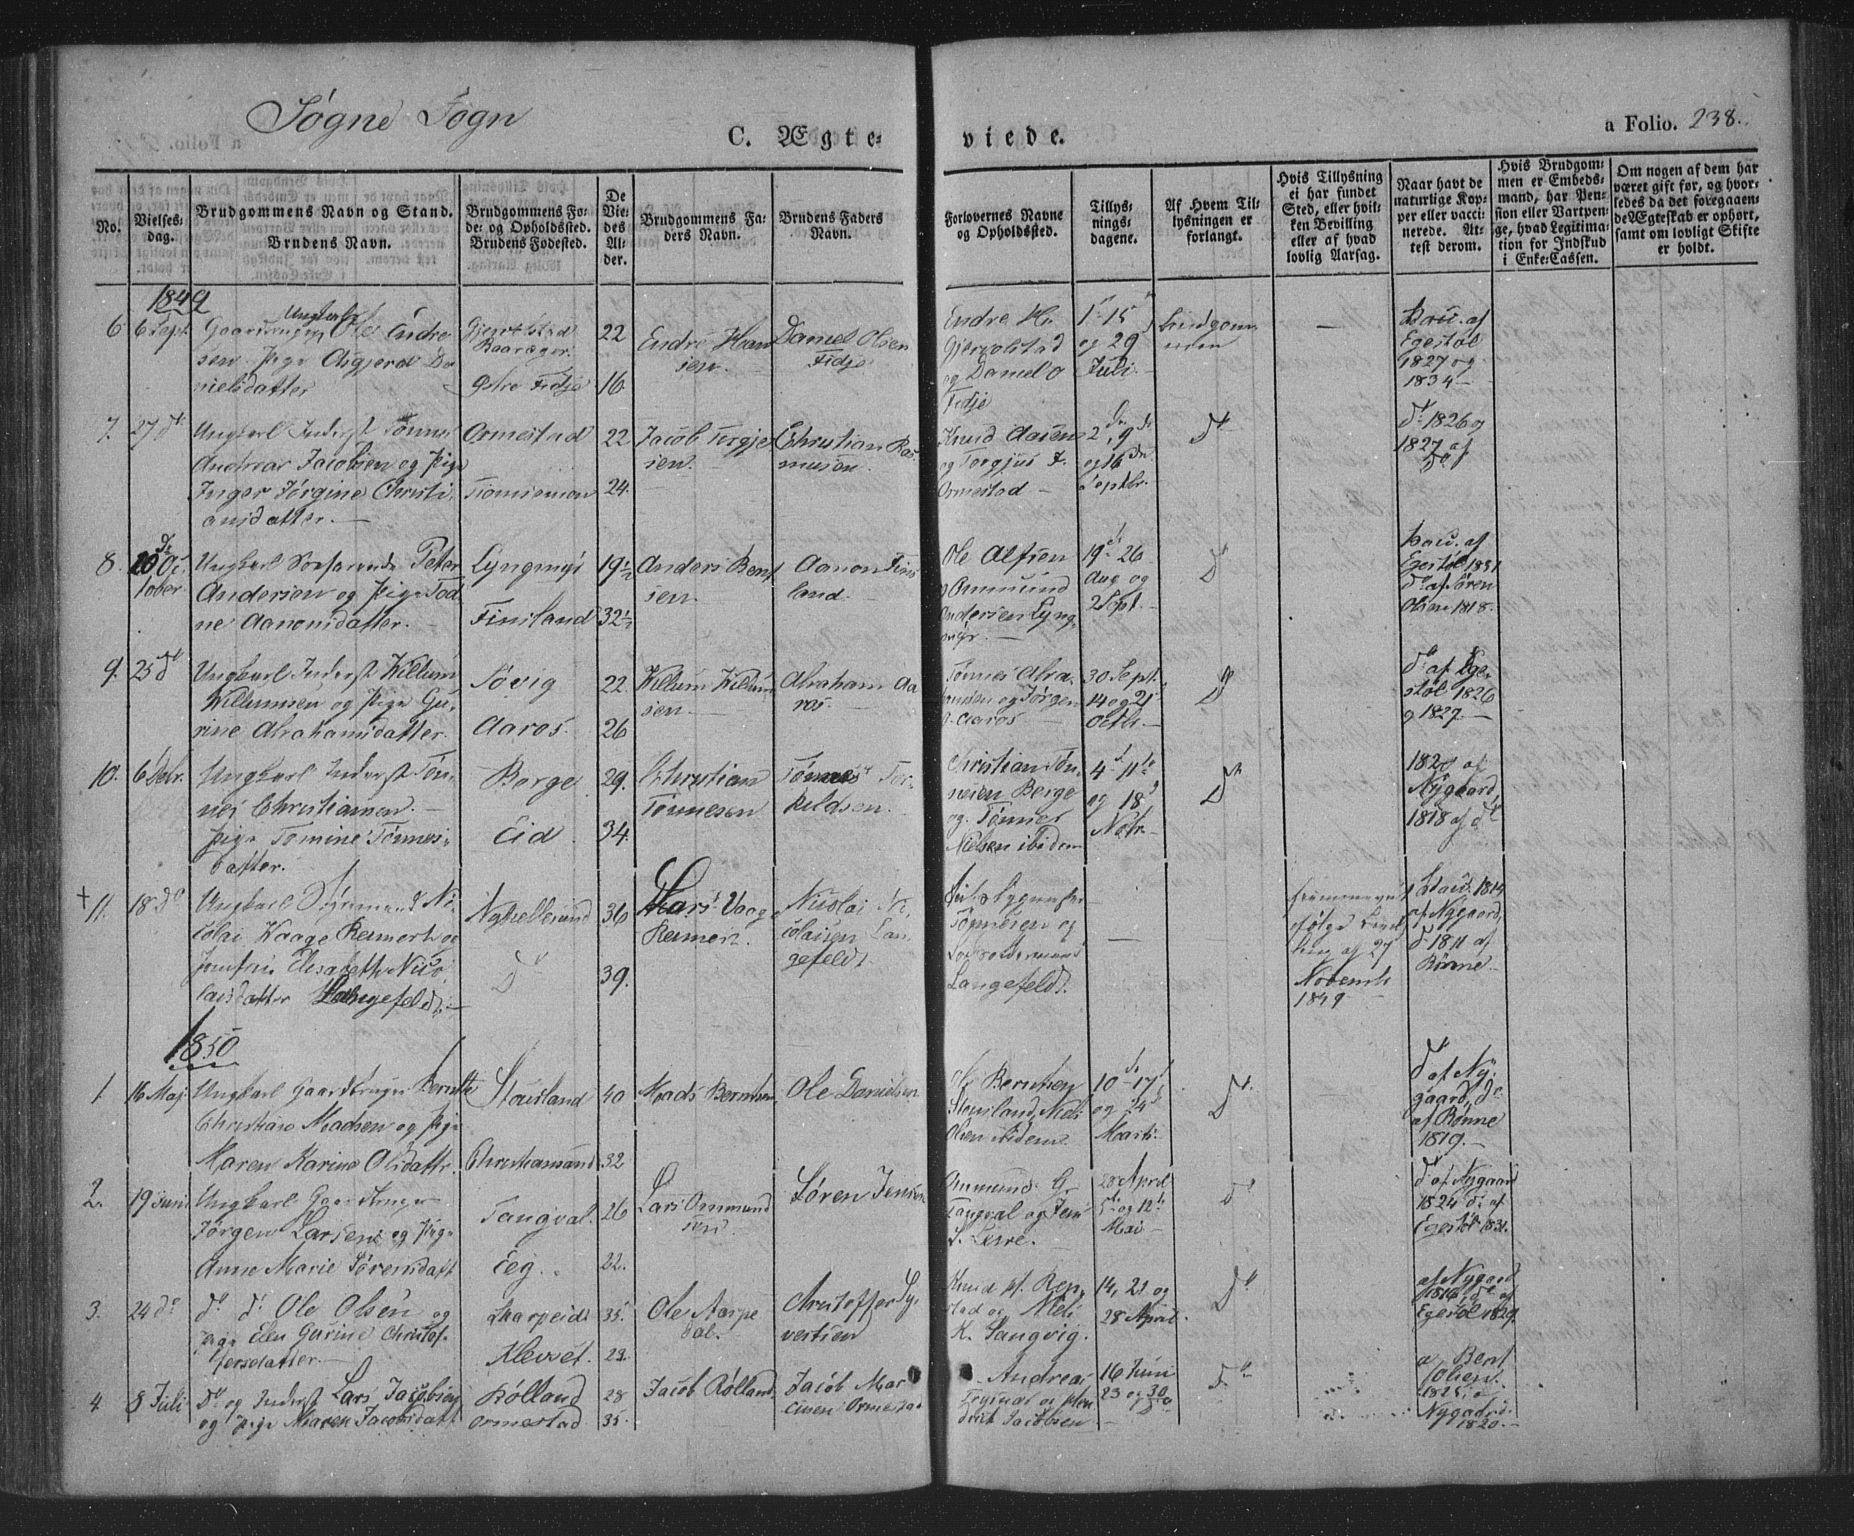 Søgne Sogn
C. Ægte-
viede.
a Folio. 238.
No.
Vielses-
dag.
Brudgommens Navn og Stand.
Brudens Navn.
Brudgommens Fø-
de- og Opholdssted.
Brudens Fødested.
De
Vie-
des
Al-
der.
Brudgommens Fa-
ders Navn.
Brudens Faders
Navn.
Forlovernes Navne
og Opholdssted.
Tillys-
nings-
dagene.
Af Hvem Til-
lysningen er
forlangt.
Hvis Tillysning
ei har fundet
Sted, eller hvil-
ken Bevilling
eller af hvad
lovlig Aarsag.
Naar havt de
naturlige Kop-
per eller vacci-
nerede. At-
test derom.
Hvis Brudgom-
men er Embeds-
mand, har Pen-
sion eller Vartpen-
ge, hvad Legitima-
tion for Indskud
i Enke-Cassen.
Om nogen af dem har
været gift før, og hvor-
ledes da det foregaaen-
de Ægteskab er ophørt,
samt om lovligt Skifte
er holdt.
1849
6
6 Sept.
Ungkarl
Gaardbruger Ole Endre
sen Pige Asgjerd Da
nielsdatter
Gjervolstad
Østre Fidje
22
16
Endre Han
sen
Daniel Olsen
Fidje
Endre H.
Gjervolstad
og Daniel O
Fidje
1 15
og 29
Juli
Brudgom
men
Vacc. af
Egestøl
1827 og
1834
7.
27 do
Ungkarl Inderst Tønnes
Andreas Jacobsen og Pige
Inger Jørgine Christi
ansdatter
Ormestad
22
24.
Jacob Torgje
sen
Christian Ras
musen
Knud Aasen
og Torgjus J.
Ormestad
2, 9
og 16
Septbr.
do
do 1826 og
1827 af
do
8.
10 Oc
tober
Ungkarl Søefarende Peter
Andersen og Pige Tod
ne Aanonsdatter.
Lyngmyr
Finsland
19½
32½
Anders Bent
sen.
Aanon Fins
land.
Ole Alfsen
og Ommund
Andersen Lyng
myr.
19 26
Aug og
2 Sept.
do
Vacc. af
Egestøl 1831
do af Søren
Olsen 1818.
9.
25 do
Ungkarl Inderst Willum
Willumsen og Pige Gu
rine Abrahamsdatter.
Søvig
Aaros.
22.
26
Willum Willum
sen
Abraham Aa
ros
Tønnes Abra
hamsen og Jørgen
Aaros
30 Sept.
14 og 21
Octbr.
do
do af Ege
støl 1826
og 1827.
10.
6 Debr.
Ungkarl Inderst Tøn
nes Christiansen.
Pige Tomine Tønnes
datter.
Berge
Eid
29.
34.
Christian
Tønnesen
Tønnes Tor
kildsen.
Christian Tøn
nesen Berge
og Tønnes
Nielsen ibidem
4 11
og 18
Novbr.
do
1820 af
Nygaard,
1818 af do
† 11.
18 do
Ungkarl Styrmand Ni
colai Waage Reimert og
Jomfru Elisabeth Nico
laisdatter Langefeldt
Ny Hellesund
do
36
39.
Lars Vaage
Reimert.
Nicolai Ni
colaisen Lan
gefeldt
Tønnesen og
Langefeldt
27
Novemb.
1849
Vacc. 1814
af Nygaard,
do 1811 af
Rønne
1850
1.
16 Maj
Ungkarl Gaardbruger Berndt
Christian Madsen og Pige
Maren Karine Olsdatter
Stousland
Christiansand
40
32
Mads Berntsen
Ole Danielsen
Ole Berntsen
Stousland, Niels
Olsen ibidem
10 17
og 24
Marts.
do
do af Ny
gaard, do
af Rønne
1819.
2.
19 Juni
Ungkarl Gaardbruger
Jørgen Larsen og Pige
Anne Marie Sørensdatt
Tangval.
Eeg.
26
22.
Lars Ommund
sen
Søren Jensen
Ommund Gr
Tangval og Jens
J. Leire.
28 April
5 og 12
Mai
do
do af Nygaard
1824 do af
Egestøl 1831.
3.
24 do
do do Ole Olsen og
Pige Elen Gurine Christof
fersdatter
Skarpeid
Klevvet.
35
23.
Ole Aarpe
dal.
Christoffer Sy
vertsen
Knud P. Rep
stad og Niels
K. Langvig.
14, 21 og
28 April.
do
af Nygaard
1816, do af
Egestøl 1829.
4
8 Juli
do og Inderst Lars Jacobsen
og Pige Maren Jacobsdatt
Kølland
Ormestad
28
35
Jacob Kølland
Jacob Mar
cusen Ormestad
Andreas
Jacobsen
16 Juni
23 og 30
do
a, Bent
Olsen
1825, a
Nygaard
1820.